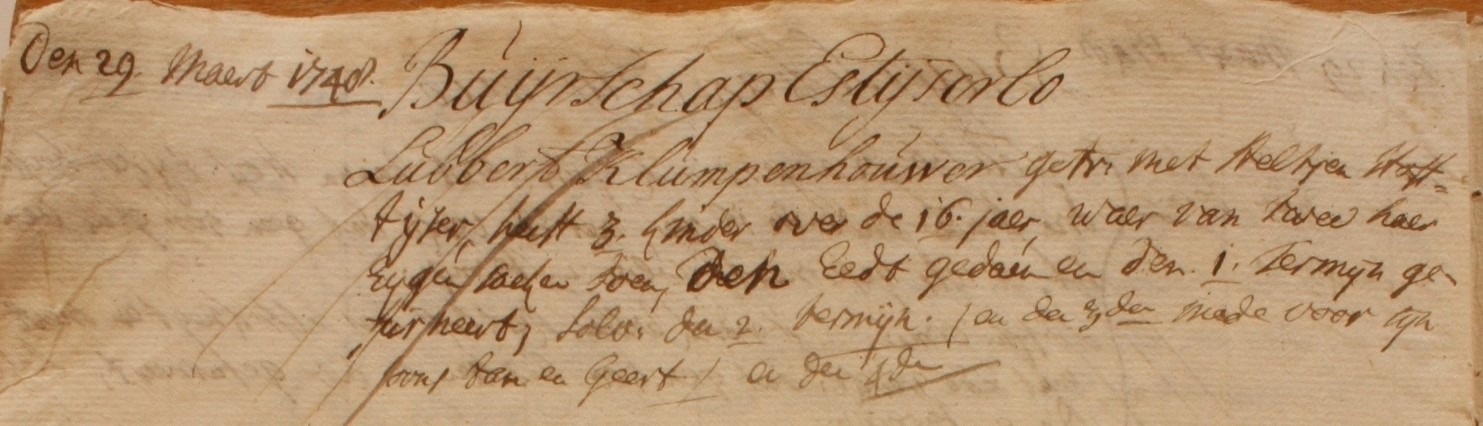 Den 29. Maert 1748. Buijrschap Estijierlo
Lubbert Klumpenhouwer getr. met Aeltjen
heeft 3. kinder over de 16. jaer, waer van twee haer
Eygen saeken doen, Den Eedt gedaen en den. 1. Termyn ge-
furneert, Solv. den 2. termyn. / en den 3den mede voor syn
soons Jan en Geert / en den 4den